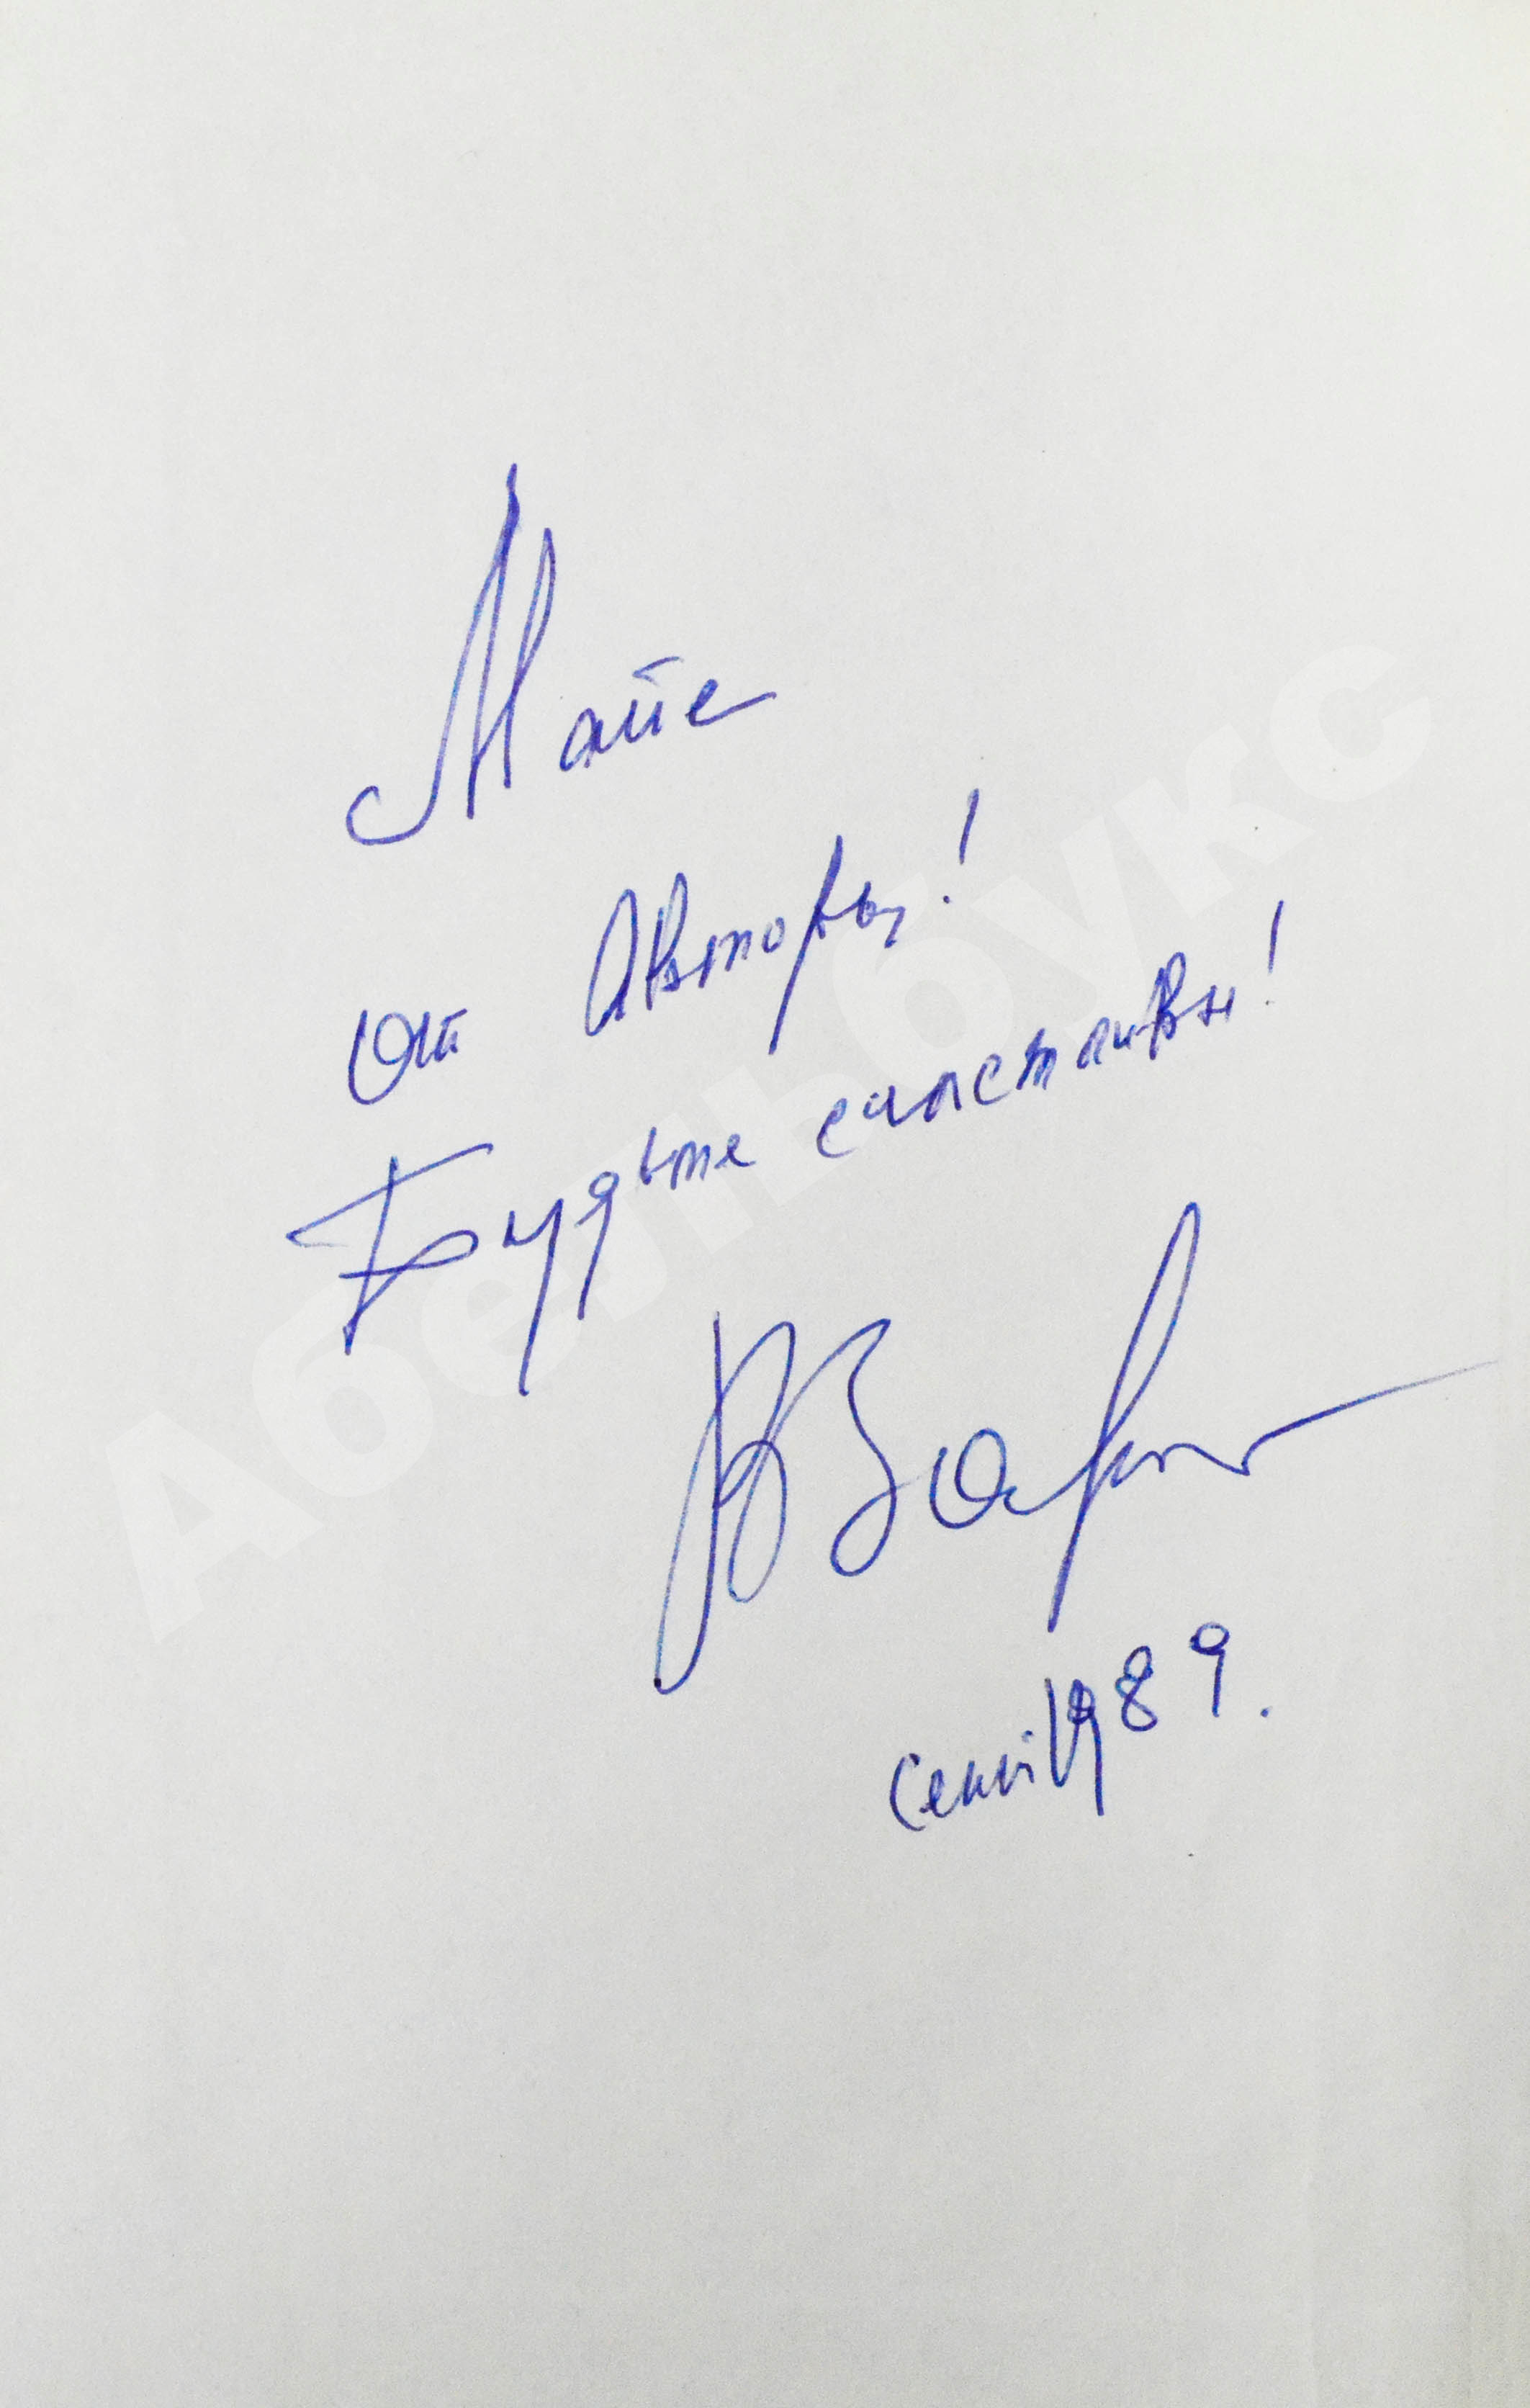 Майе
от Авторы!
Будьте счастливы!
сент. 1989.
Абельбукс